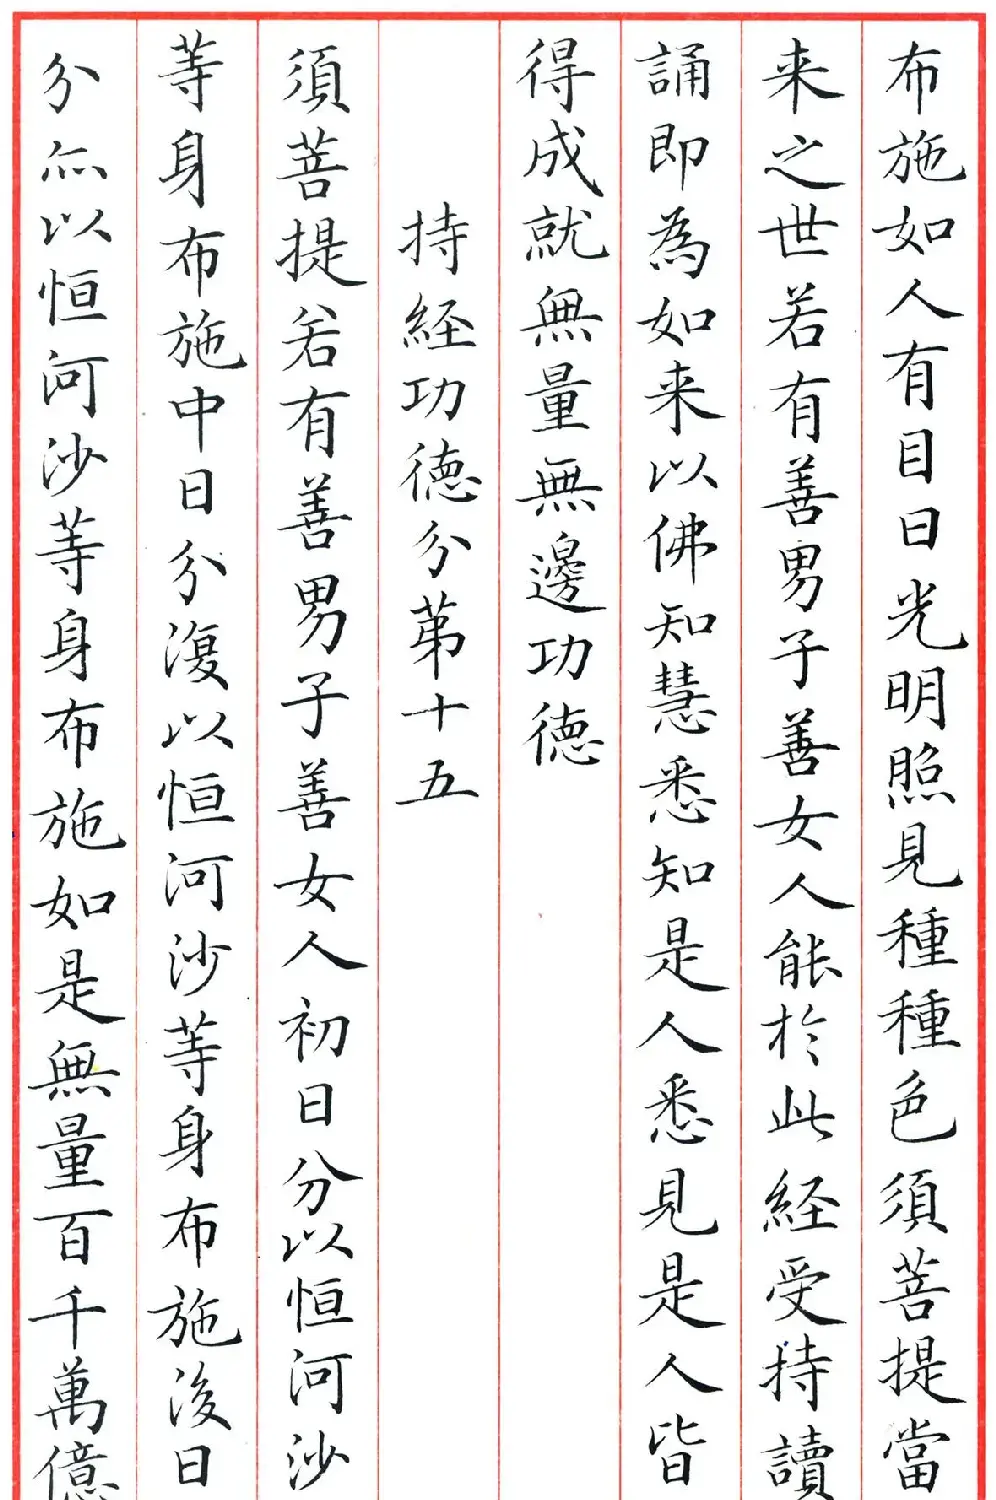 布施如人有目日光明照見種種色須菩提當
来之世若有善男子善女人能於此経受持讀
誦即為如来以佛知慧悉知是人悉見是人皆
得成就無量無邊功德
持経功德分第十五
須菩提若有善男子善女人初日分以恒河沙
等身布施中日分復以恒河沙等身布施後日
分亦以恒河沙等身布施如是無量百千萬億